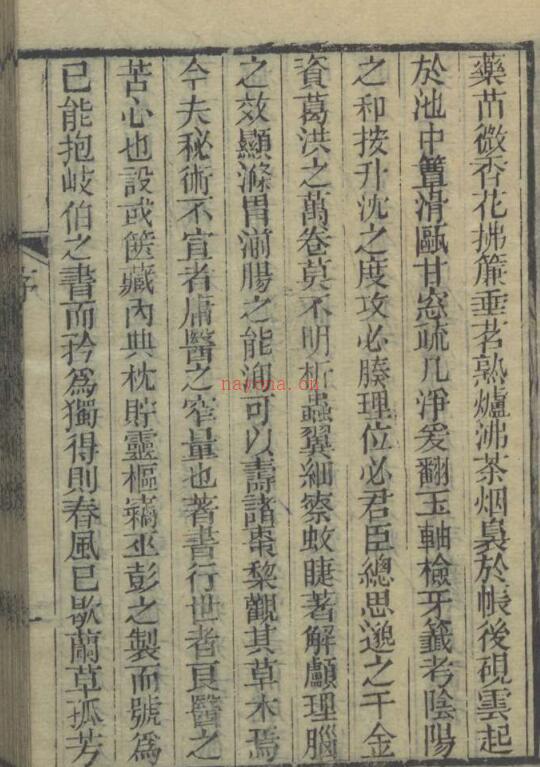 藥苗微香花拂簾垂茗熟爐沸茶烟裊於帳後硯雲起
於池中簟滑甌甘窓疏几淨爰翻玉軸檢牙籤考陰陽
之和按升沈之度攻必腠理位必君臣總思邈之千金
資葛洪之萬卷莫不明析蟲翼細察蚊睫著解顱理腦
之效顯滌胃湔腸之能洵可以壽諸棗黎觀其草木焉
今夫秘術不宣者庸醫之窄量也著書行世者良醫之
苦心也設或篋藏內典枕貯靈樞竊巫彭之製而號爲
已能抱岐伯之書而矜爲獨得則春風已歇蘭草孤芳
序
nayona.cn